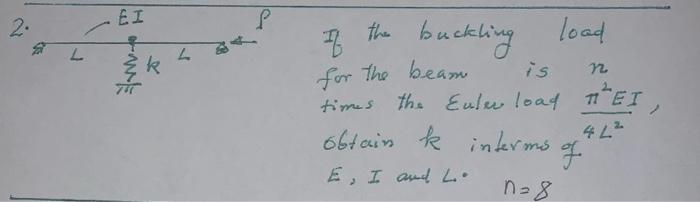 2.
EI
P
L
k
L
If the buckling load
for the beam is n
times the Euler load π²EI/4L²,
obtain k in terms of
E, I and L.
n=8